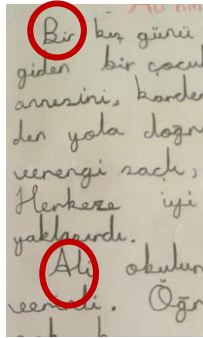 Bir kış günü
giden bir çocu
annesini, karde
den yola doğr
verengi saçlı,
Herkeze iyi
yaklaşırdı.
Ali okulun
Öğr